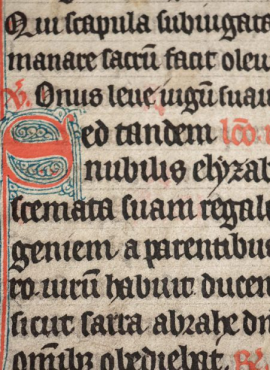 Qui scapula subiugata
manare sacrũ facit oleu
V. Onus leue iugũ suaui
Sed tandem lco
nubilis elyzab
scemata suam regale
geniem a parentibus
ro. uirũ habuit ducen
sicut sarra abrahe dn
omĩbꝫ obediebat. R